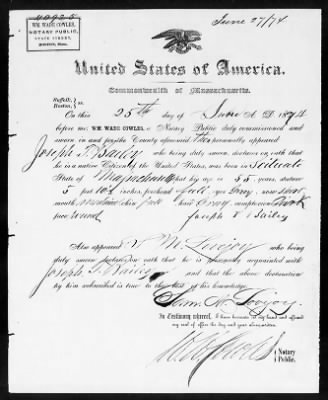 40925
WM WADE COWLES,
NOTARY PUBLIC,
STATE STREET,
BOSTON, Mass.
June 27/74
United States of America.
Commonwealth of Massachusetts.
Suffolk, ss.
Boston,
On this 25th day of June A. D. 1874
before me, WM WADE COWLES, a Notary Public duly commissioned and
sworn in and for the County aforesaid, personally appeared
Joseph T. Bailey who being duly sworn, declares on oath that
he is a native Citizen of the United States, was born in Scituate
State of Massachusetts that his age is 55 years, stature
5 feet 10½ inches, forehead full eyes Grey, nose short
mouth chin full hair Grey, complexion Dark
face round Joseph T Bailey
Also appeared M. Lovejoy who being
duly sworn on oath that he is personally acquainted with
Joseph T. Bailey and that the above declaration
by him submitted is true to the best of his knowledge.
Sam. M. Lovejoy.
In Testimony whereof, I have hereunto set my hand and affixed
my seal of office the day and year above written.
Notary
Public.